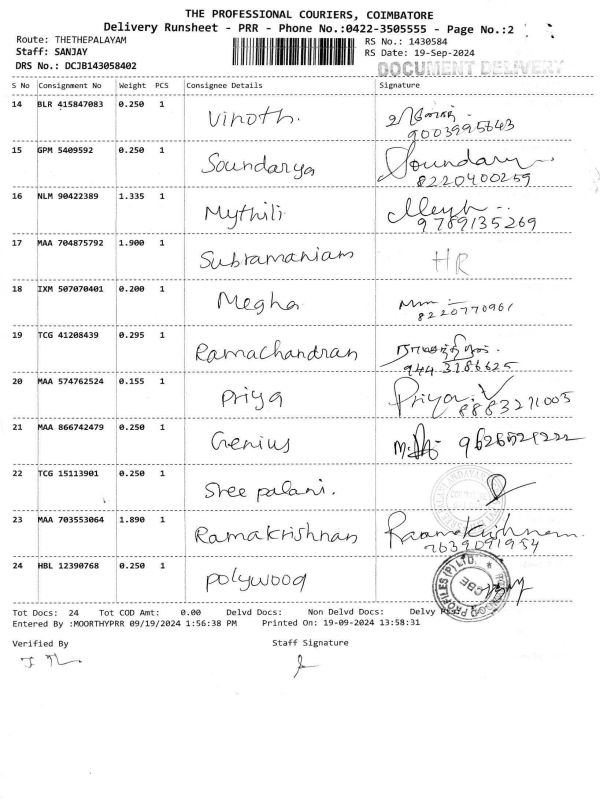 THE PROFESSIONAL COURIERS, COIMBATORE
Delivery Runsheet - PRR - Phone No.:0422-3505555 - Page No.:2
Route: THETHEPALAYAM RS No.: 1430584
Staff: SANJAY RS Date: 19-Sep-2024
DRS No.: DCJB143058402 DOCUMENT DELIVERY
S No Consignment No Weight PCS Consignee Details Signature
14 BLR 415847083 0.250 1 Vinoth.
9003995643
15 GPM 5409592 0.250 1 Soundarya Soundary
8220400259
16 NLM 90422389 1.335 1 Mythili
9789135269
17 MAA 704875792 1.900 1 Subramaniam HR
18 IXM 507070401 0.200 1 Megha
8220770961
19 TCG 41208439 0.295 1 Ramachandran
944 3786625
20 MAA 574762524 0.155 1 Priya Priya. V
8883271005
21 MAA 866742479 0.250 1 Genius
22 TCG 15113901 0.250 1 Sree palani.
23 MAA 703553064 1.890 1 Ramakrishnan
7639091954
24 HBL 12390768 0.250 1 Polywood
Tot Docs: 24 Tot COD Amt: 0.00 Delvd Docs: Non Delvd Docs: Delvy
Entered By :MOORTHYPRR 09/19/2024 1:56:38 PM Printed On: 19-09-2024 13:58:31
Verified By Staff Signature